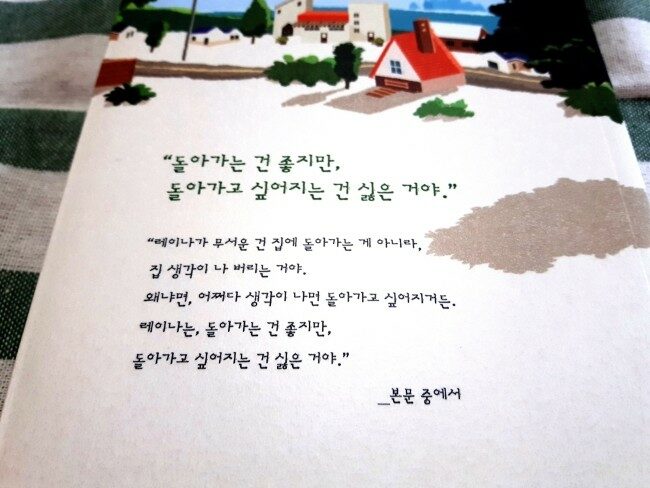 “돌아가는 건 좋지만,
돌아가고 싶어지는 건 싫은 거야.”
“레이나가 무서운 건 집에 돌아가는 게 아니라,
집 생각이 나 버리는 거야.
왜냐면, 어쩌다 생각이 나면 돌아가고 싶어지거든.
레이나는, 돌아가는 건 좋지만,
돌아가고 싶어지는 건 싫은 거야.”
_본문 중에서